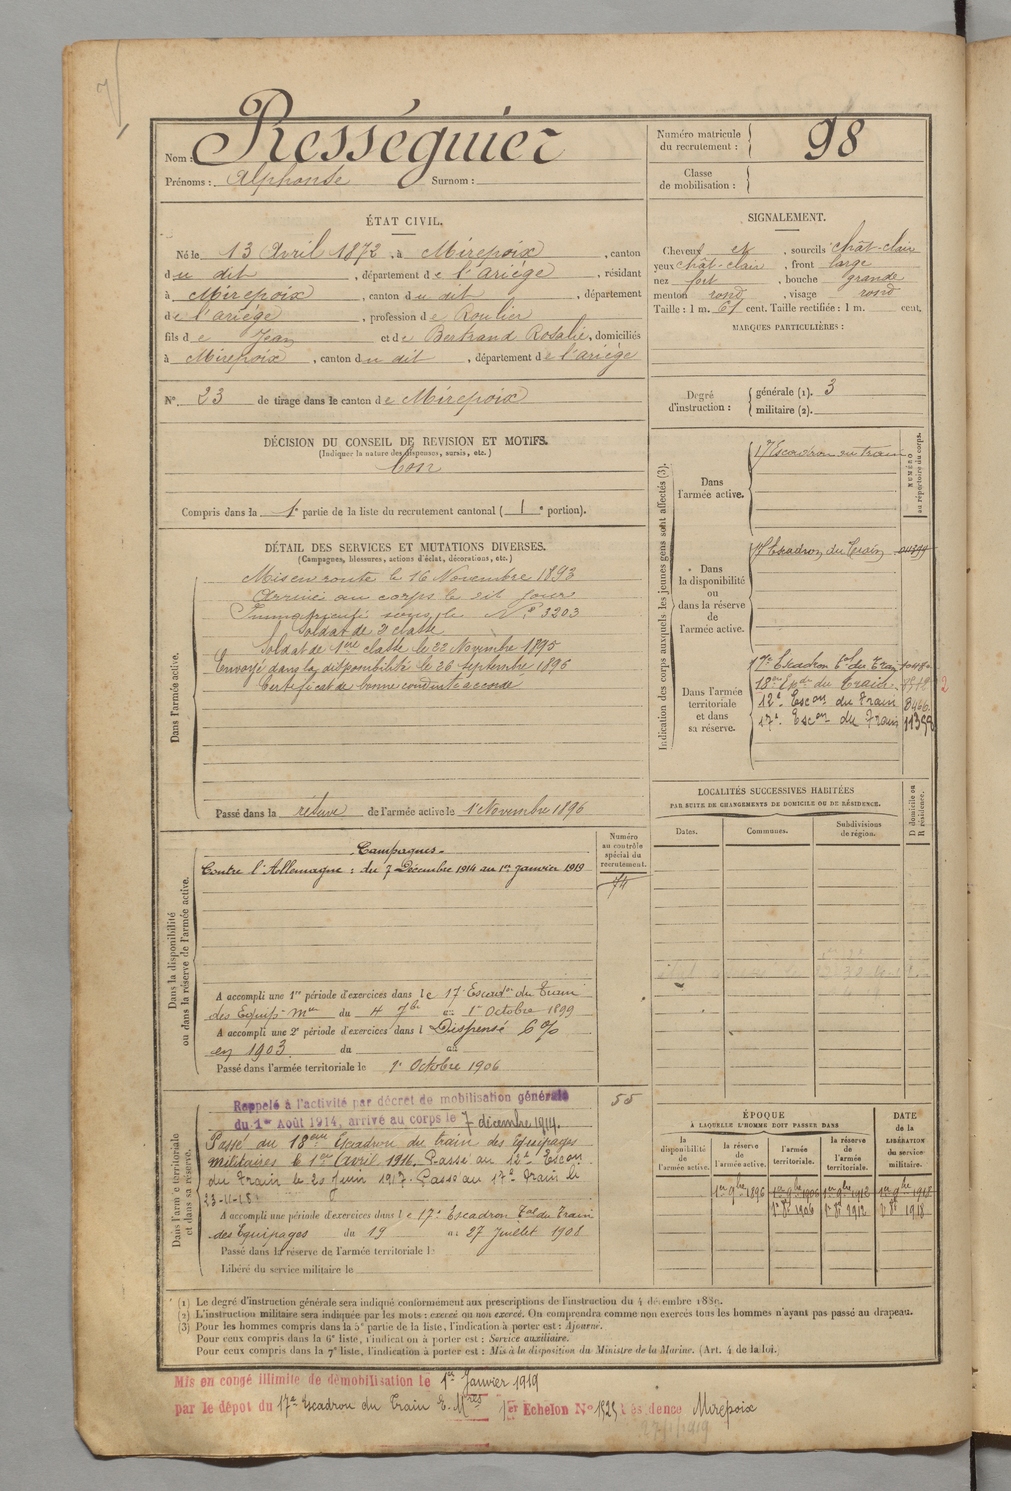 Nom : Rességuier
Prénoms : Alphonse Surnom :
Numéro matricule du recrutement : 98
Classe de mobilisation :
ÉTAT CIVIL.
Né le 13 Avril 1872, à Mirepoix, canton
du dit, département de l'Ariège, résidant
à Mirepoix, canton du dit, département
de l'ariége, profession de Roulier
fils de Jean et de Bertrand Rosalie, domiciliés
à Mirepoix, canton du dit, département de l'ariége
N° 23 de tirage dans le canton de Mirepoix
SIGNALEMENT.
Cheveux et, sourcils chât-clair
yeux chât-clair, front large
nez fort, bouche grande
menton rond, visage rond
Taille : 1 m. 61 cent. Taille rectifiée : 1 m. cent.
MARQUES PARTICULIÈRES :
Degré d'instruction : générale (1). 3
militaire (2).
DÉCISION DU CONSEIL DE REVISION ET MOTIFS.
(Indiquer la nature des dispenses, sursis, etc.)
bon
Compris dans la 1e partie de la liste du recrutement cantonal ( 1 e portion).
DÉTAIL DES SERVICES ET MUTATIONS DIVERSES.
(Campagnes, blessures, actions d'éclat, décorations, etc.)
Dans l'armée active.
Mis en route le 16 Novembre 1893
Arrivé au corps le dit jour
Immatriculé sous le N° 3203
Soldat de 2e classe
Soldat de 1ère classe le 22 Novembre 1895
Envoyé dans la disponibilité le 26 septembre 1896
Certificat de bonne conduite accordé
Passé dans la réserve de l'armée active le 1 Novembre 1896
Indication des corps auxquels les jeunes gens sont affectés (3).
NUMÉRO au répertoire du corps.
Dans l'armée active. 17 Escadron du train
Dans la disponibilité ou dans la réserve de l'armée active. 17 Escadron du Train
Dans l'armée territoriale et dans sa réserve.
17e Escadron Tal du Train
18e Esc.on du Train
12e Escon du Train 8466
17e Escon du Train 11398
LOCALITÉS SUCCESSIVES HABITÉES
PAR SUITE DE CHANGEMENTS DE DOMICILE OU DE RÉSIDENCE.
Dates. Communes. Subdivisions de région. D domicile ou R résidence.
Dans la disponibilité ou dans la réserve de l'armée active.
Numéro au contrôle spécial du recrutement.
74
Campagnes.
Contre l'Allemagne : du 7 Décembre 1914 au 1er janvier 1919
A accompli une 1re période d'exercices dans le 17 Escadon du Train
des Equip. Mres du 4 7bre au 1er Octobre 1899
A accompli une 2e période d'exercices dans l Dispensé 6%
en 1903 du au
Passé dans l'armée territoriale le 1r Octobre 1906
Dans l'armée territoriale et dans sa réserve.
55
Rappelé à l'activité par décret de mobilisation générale
du 1er Août 1914, arrivé au corps le 7 décembre 1914.
Passé au 18eme Escadron du train des Equipages
militaires le 1er Avril 1916. Passé au 12e Escon
du Train le 20 Juin 1917. Passé au 17e Train le
23-11-18
A accompli une période d'exercices dans le 17e Escadron Tal du Train
des Equipages du 19 au 27 Juillet 1908
Passé dans la réserve de l'armée territoriale le
Libéré du service militaire le
ÉPOQUE
À LAQUELLE L'HOMME DOIT PASSER DANS
DATE de la LIBÉRATION du service militaire.
la disponibilité de l'armée active. la réserve de l'armée active. l'armée territoriale. la réserve de l'armée territoriale.
1er 9bre 1896 1er 9bre 1906 1er 9bre 1912 1er 9bre 1918
1r 8bre 1906 1r 8bre 1912 1r 8bre 1918
(1) Le degré d'instruction générale sera indiqué conformément aux prescriptions de l'instruction du 4 décembre 1889.
(2) L'instruction militaire sera indiquée par les mots : exercé ou non exercé. On comprendra comme non exercés tous les hommes n'ayant pas passé au drapeau.
(3) Pour les hommes compris dans la 5e partie de la liste, l'indication à porter est : Ajourné.
Pour ceux compris dans la 6e liste, l'indication à porter est : Service auxiliaire.
Pour ceux compris dans la 7e liste, l'indication à porter est : Mis à la disposition du Ministre de la Marine. (Art. 4 de la loi.)
Mis en congé illimité de démobilisation le 1er Janvier 1919
par le dépot du 17e Escadron du Train E. Mres 1er Echelon N° 1525 résidence Mirepoix
27/1/1919